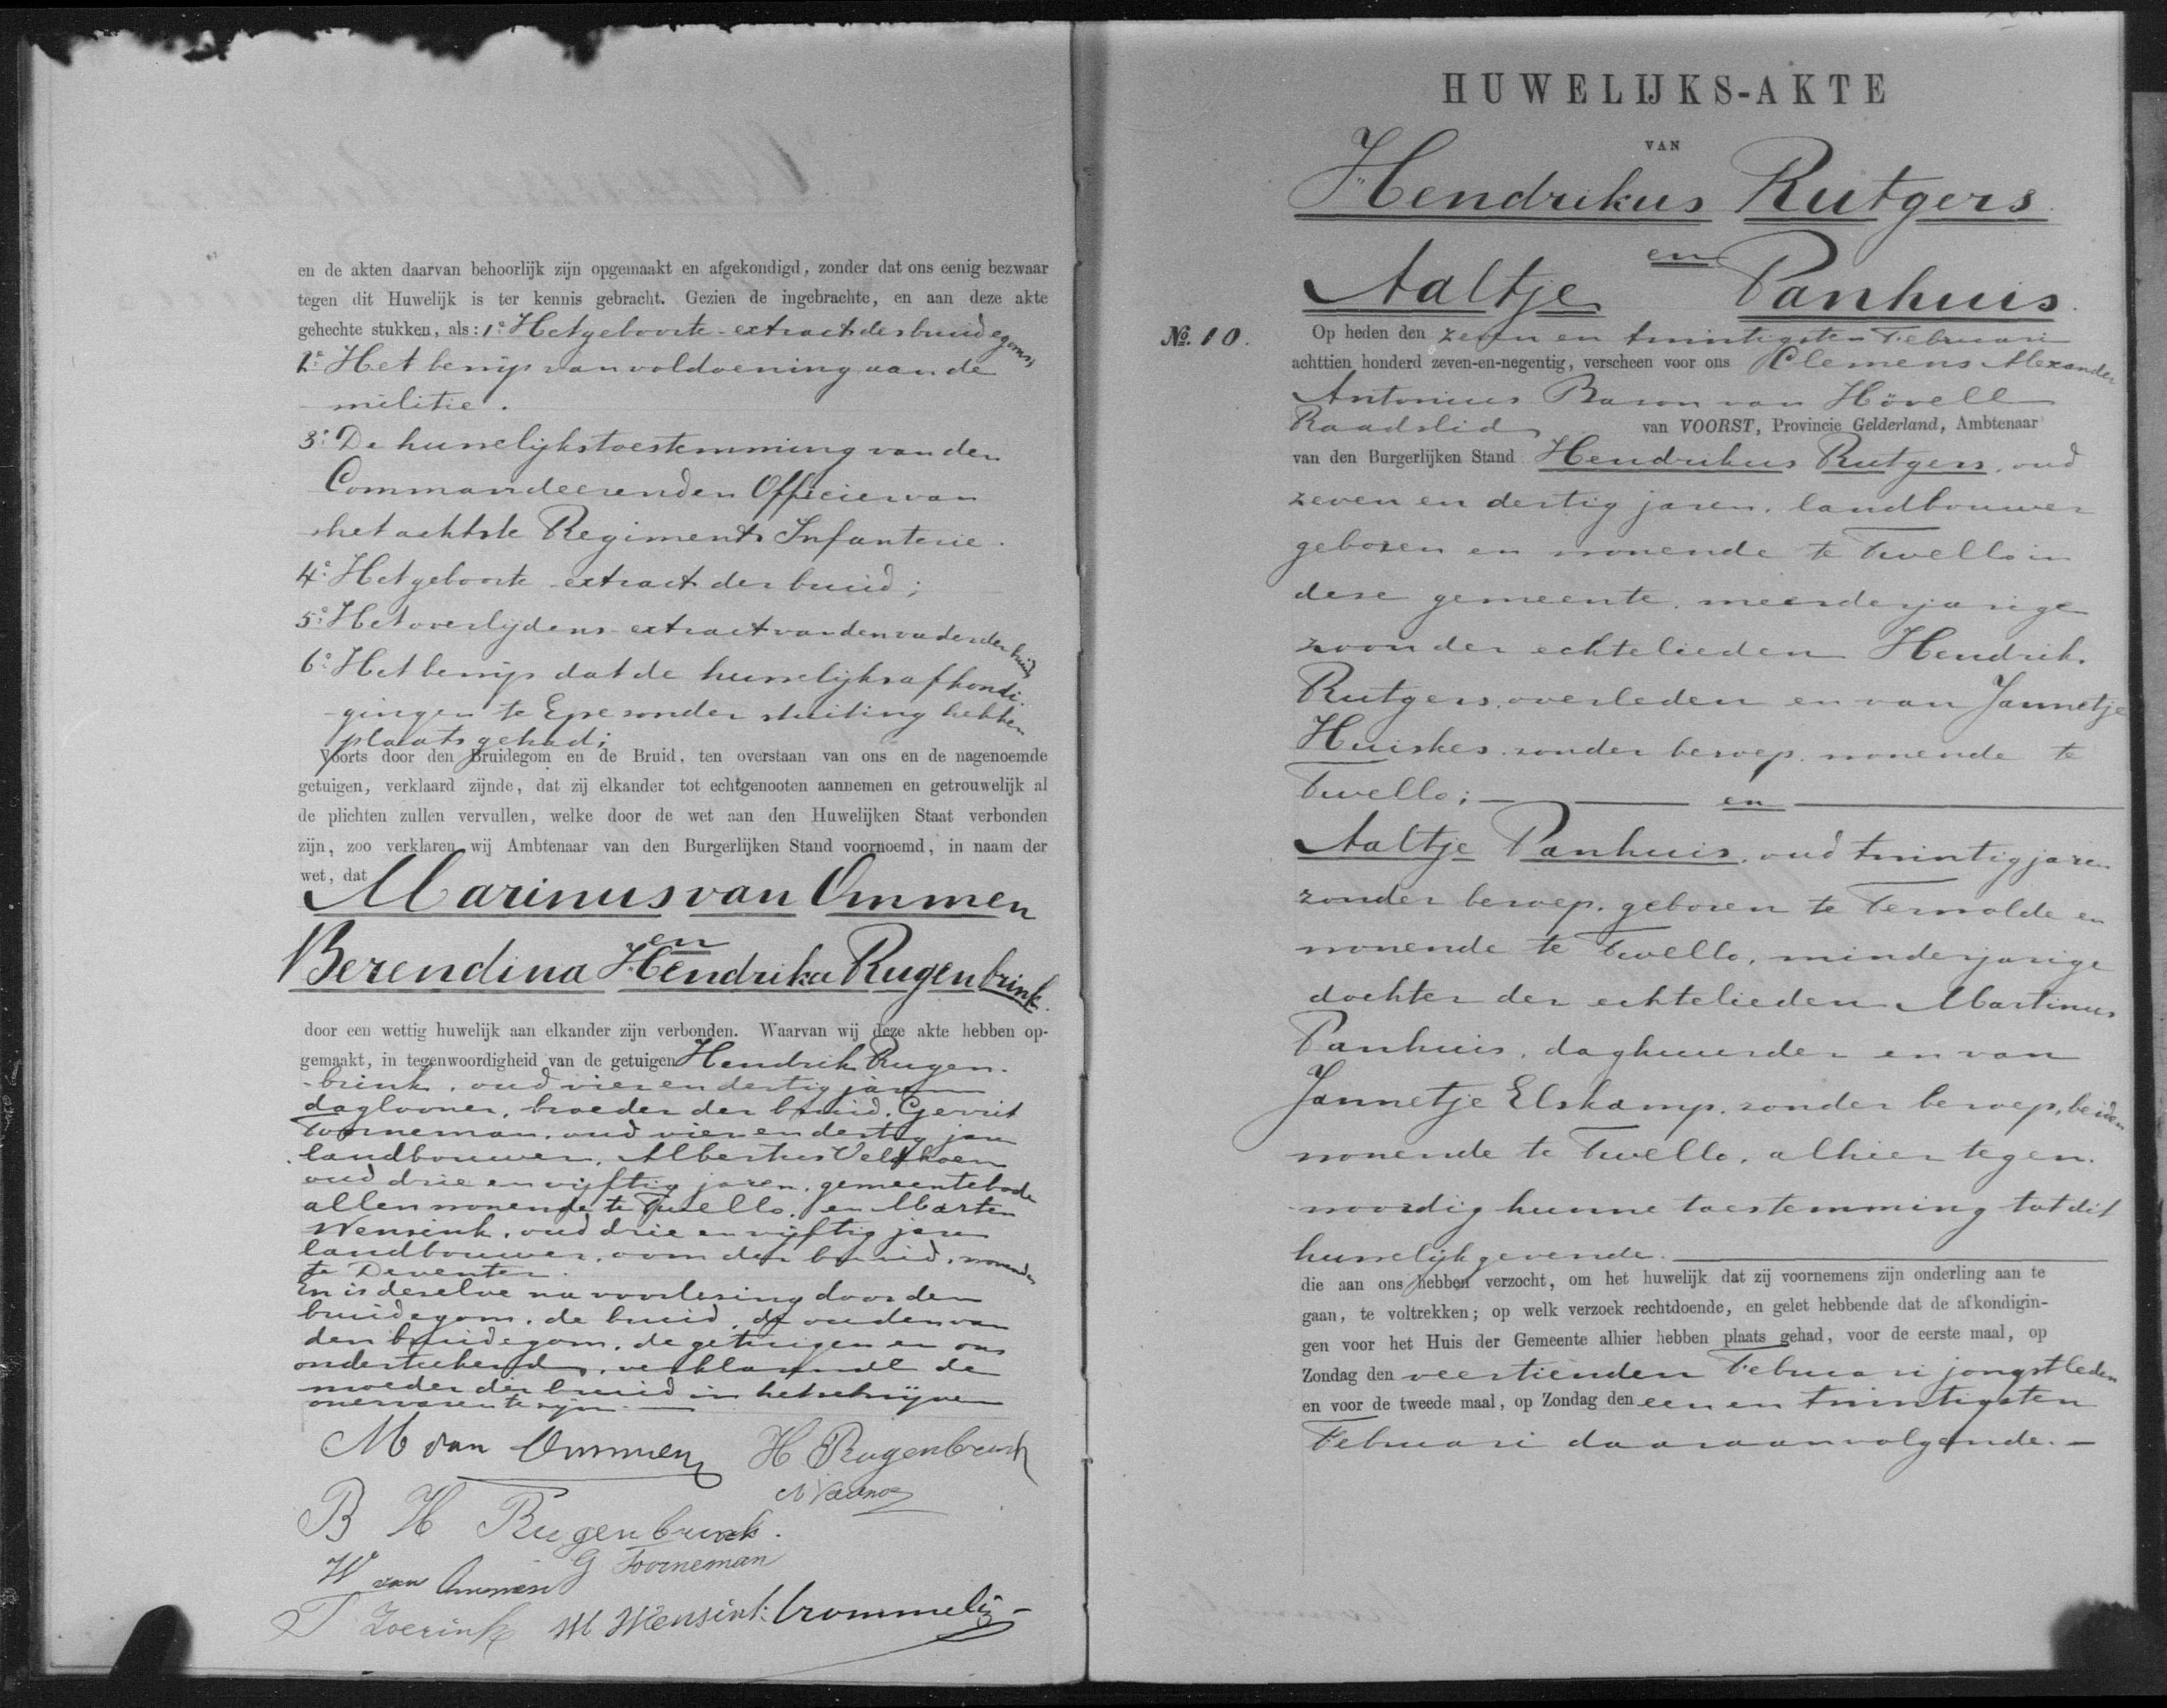 en de akten daarvan behoorlijk zijn opgemaakt en afgekondigd, zonder dat ons eenig bezwaar
tegen dit Huwelijk is ter kennis gebracht. Gezien de ingebrachte, en aan deze akte
gehechte stukken, als: 1e. Het geboorte-extract des bruidegoms;
2e. Het bewijs van voldoening aan de
militie.
3e. De huwelijkstoestemming van den
Commandeerenden Officier van
het achtste Regiment Infanterie.
4e. Het geboorte-extract der bruid;
5e. Het overlijdens-extract van den vader der bruid
6e. Het bewijs dat de huwelijksafkondi-
gingen te Epe zonder stuiting hebben
plaats gehad;
Voorts door den Bruidegom en de Bruid, ten overstaan van ons en de nagenoemde
getuigen, verklaard zijnde, dat zij elkander tot echtgenooten aannemen en getrouwelijk al
de plichten zullen vervullen, welke door de wet aan den Huwelijken Staat verbonden
zijn, zoo verklaren wij Ambtenaar van den Burgerlijken Stand voornoemd, in naam der
wet, dat
Marinus van Ommen
en
Berendina Hendrika Rugenbrink.
door een wettig huwelijk aan elkander zijn verbonden. Waarvan wij deze akte hebben op-
gemaakt, in tegenwoordigheid van de getuigen Hendrik Rugen-
brink, oud vier en dertig jaren
daglooner, broeder der bruid, Gerrit
Toorneman, oud vier en dertig jaar
landbouwer, Albertus Veldhoen
oud drie en vijftig jaren, gemeentebode
allen wonende te Twello, en Marten
Wensink, oud drie en vijftig jaren
landbouwer, oom der bruid, wonende
te Deventer.
En is dezelve na voorlezing door den
bruidegom, de bruid, de ouders van
den bruidegom, de getuigen en ons
onderteekend, verklarende de
moeder der bruid in het schrijven
onervaren te zijn.
M van Ommen H Rugenbrink
B H Rugenbrink.
W van Ommen G Toorneman
T Zoerink M Wensink Crommelin
HUWELIJKS-AKTE
VAN
Hendrikus Rutgers
en
Aaltje Panhuis.
No. 10. Op heden den zeven en twintigsten Februari
achttien honderd zeven-en-negentig, verscheen voor ons Clemens Alexander
Antonius Baron van Hövell
Raadslid van VOORST, Provincie Gelderland, Ambtenaar
van den Burgerlijken Stand Hendrikus Rutgers, oud
zeven en dertig jaren, landbouwer
geboren en wonende te Twello in
deze gemeente, meerderjarige
zoon der echtelieden Hendrik
Rutgers, overleden en van Jannetje
Huiskes, zonder beroep, wonende te
Twello; en
Aaltje Panhuis, oud twintig jaren
zonder beroep, geboren te Terwolde en
wonende te Twello, minderjarige
dochter der echtelieden Martinus
Panhuis, daghuurder en van
Jannetje Elskamp, zonder beroep, beiden
wonende te Twello, alhier tegen-
woordig hunne toestemming tot dit
huwelijk gevende.
die aan ons hebben verzocht, om het huwelijk dat zij voornemens zijn onderling aan te
gaan, te voltrekken; op welk verzoek rechtdoende, en gelet hebbende dat de afkondigin-
gen voor het Huis der Gemeente alhier hebben plaats gehad, voor de eerste maal, op
Zondag den veertienden Februari jongstleden
en voor de tweede maal, op Zondag den een en twintigsten
Februari daaraanvolgende.